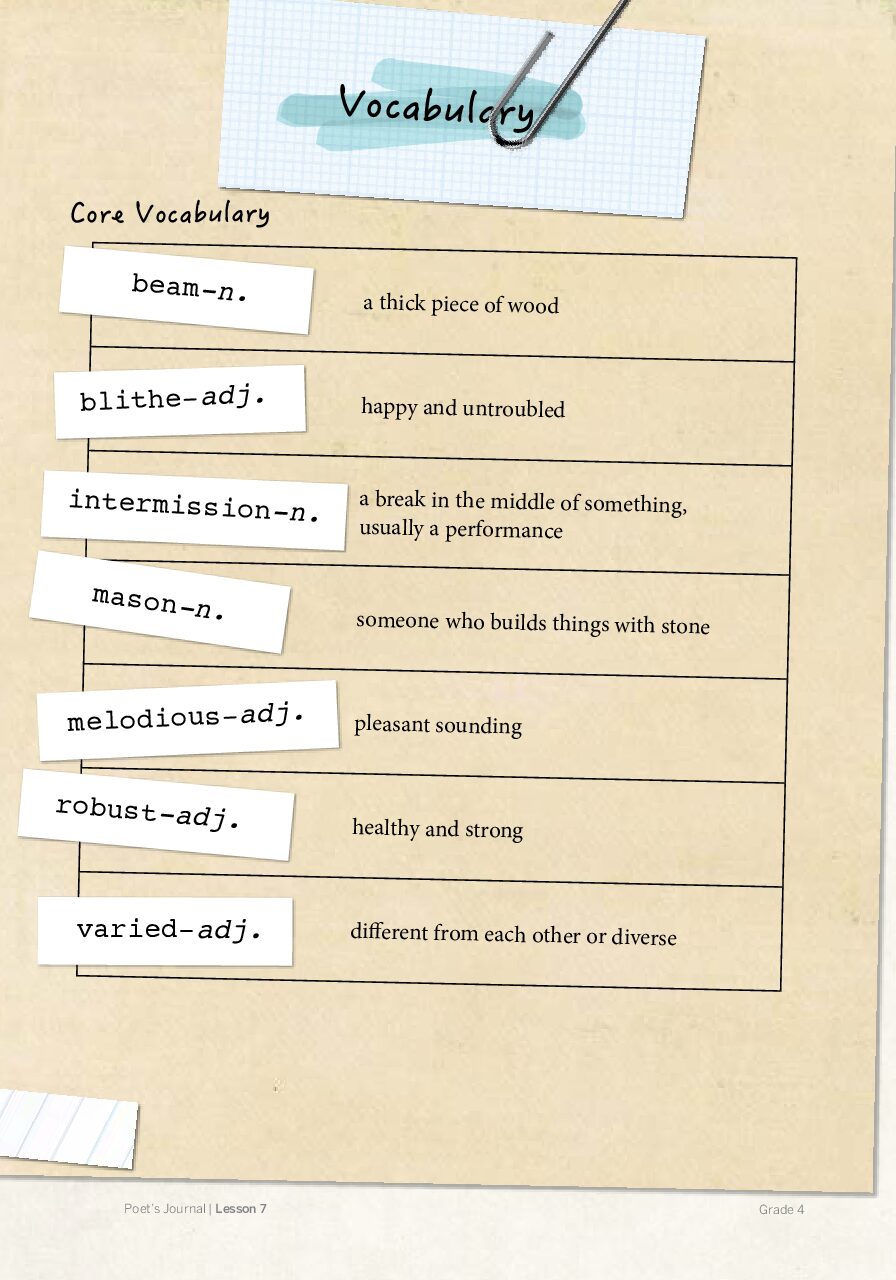 Vocabulary
Core Vocabulary
beam–n.
a thick piece of wood
blithe–adj.
happy and untroubled
intermission–n.
a break in the middle of something,
usually a performance
mason–n.
someone who builds things with stone
melodious–adj.
pleasant sounding
robust–adj.
healthy and strong
varied–adj.
different from each other or diverse
Poet's Journal | Lesson 7
Grade 4